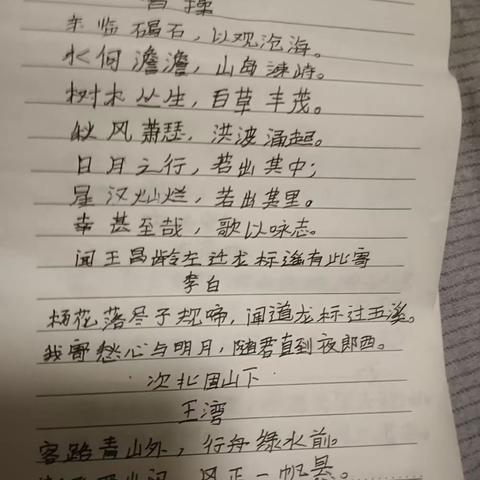 曹操
东临碣石，以观沧海。
水何澹澹，山岛竦峙。
树木丛生，百草丰茂。
秋风萧瑟，洪波涌起。
日月之行，若出其中；
星汉灿烂，若出其里。
幸甚至哉，歌以咏志。
闻王昌龄左迁龙标遥有此寄
李白
杨花落尽子规啼，闻道龙标过五溪。
我寄愁心与明月，随君直到夜郎西。
次北固山下
王湾
客路青山外，行舟绿水前。
风正一帆悬。